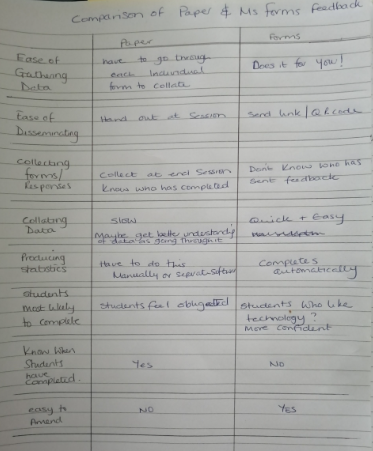 Comparison of Paper & Ms Forms Feedback
Paper Forms
Ease of
Gathering
Data
have to go through
each individual
form to collate
Does it for you!
Ease of
Disseminating
Hand out at Session
Send link / QR code
Collecting
forms/
Responses
Collect at end Session
Know who has completed
Dont know who has
sent feedback
Collating
Data
Slow
Maybe get better
of data as going through it
Quick + Easy
Producing
Statistics
Have to do this
Manually or
Completes
automatically
Students
most likely
to complete
Students feel
Students who like
technology?
More confident
Know When
Students
have
Completed.
Yes
NO
easy to
Amend
NO
Yes